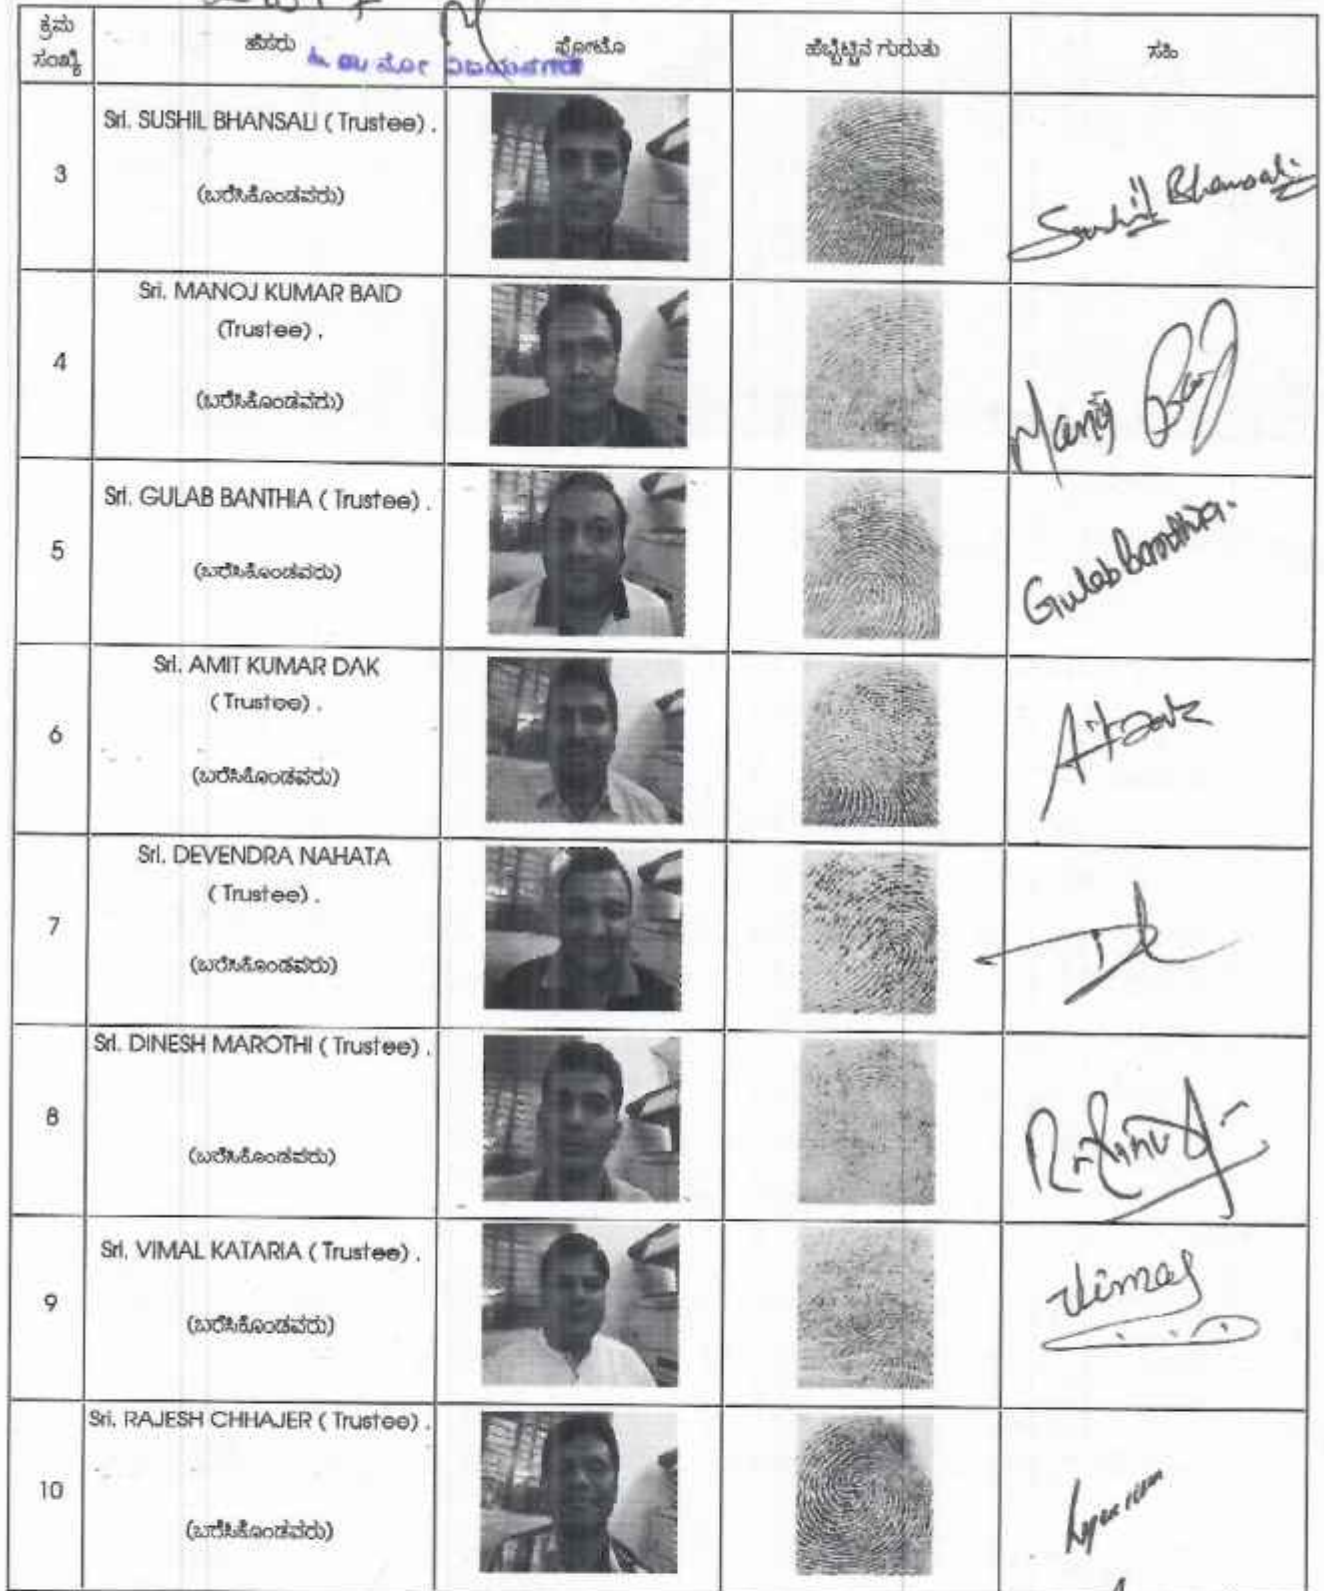 ಕ್ರಮ
ಸಂಖ್ಯೆ
ಹೆಸರು
ಫೋಟೊ
ಹೆಬ್ಬೆಟ್ಟಿನ ಗುರುತು
ಸಹಿ
3
Sri. SUSHIL BHANSALI ( Trustee) .
(ಬರೆಸಿಕೊಂಡವರು)
Sushil Bhansali
4
Sri. MANOJ KUMAR BAID
(Trustee) .
(ಬರೆಸಿಕೊಂಡವರು)
Manoj Baid
5
Sri. GULAB BANTHIA ( Trustee) .
(ಬರೆಸಿಕೊಂಡವರು)
Gulab Banthia.
6
Sri. AMIT KUMAR DAK
( Trustee) .
(ಬರೆಸಿಕೊಂಡವರು)
7
Sri. DEVENDRA NAHATA
( Trustee) .
(ಬರೆಸಿಕೊಂಡವರು)
8
Sri. DINESH MAROTHI ( Trustee) .
(ಬರೆಸಿಕೊಂಡವರು)
9
Sri. VIMAL KATARIA ( Trustee) .
(ಬರೆಸಿಕೊಂಡವರು)
Vimal
10
Sri. RAJESH CHHAJER ( Trustee) .
(ಬರೆಸಿಕೊಂಡವರು)